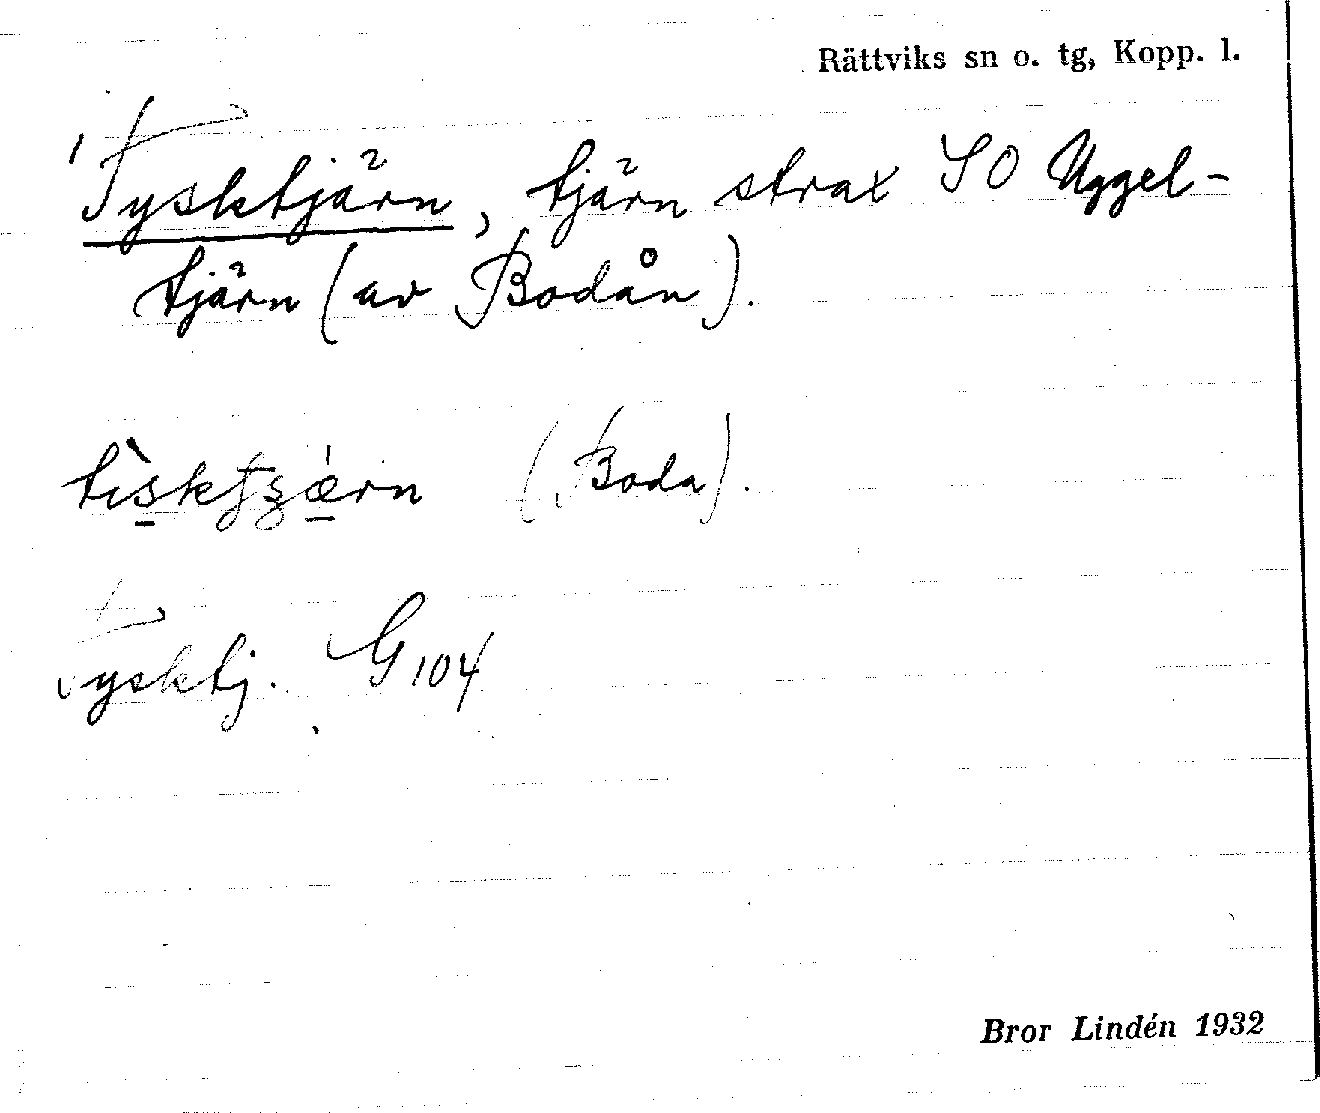 Rättviks sn o. tg, Kopp. l.
Tysktjärn, tjärn strax SO Uggel-
tjärn (av Bodån).
(Boda).
Tysktj. G 104
Bror Lindén 1932